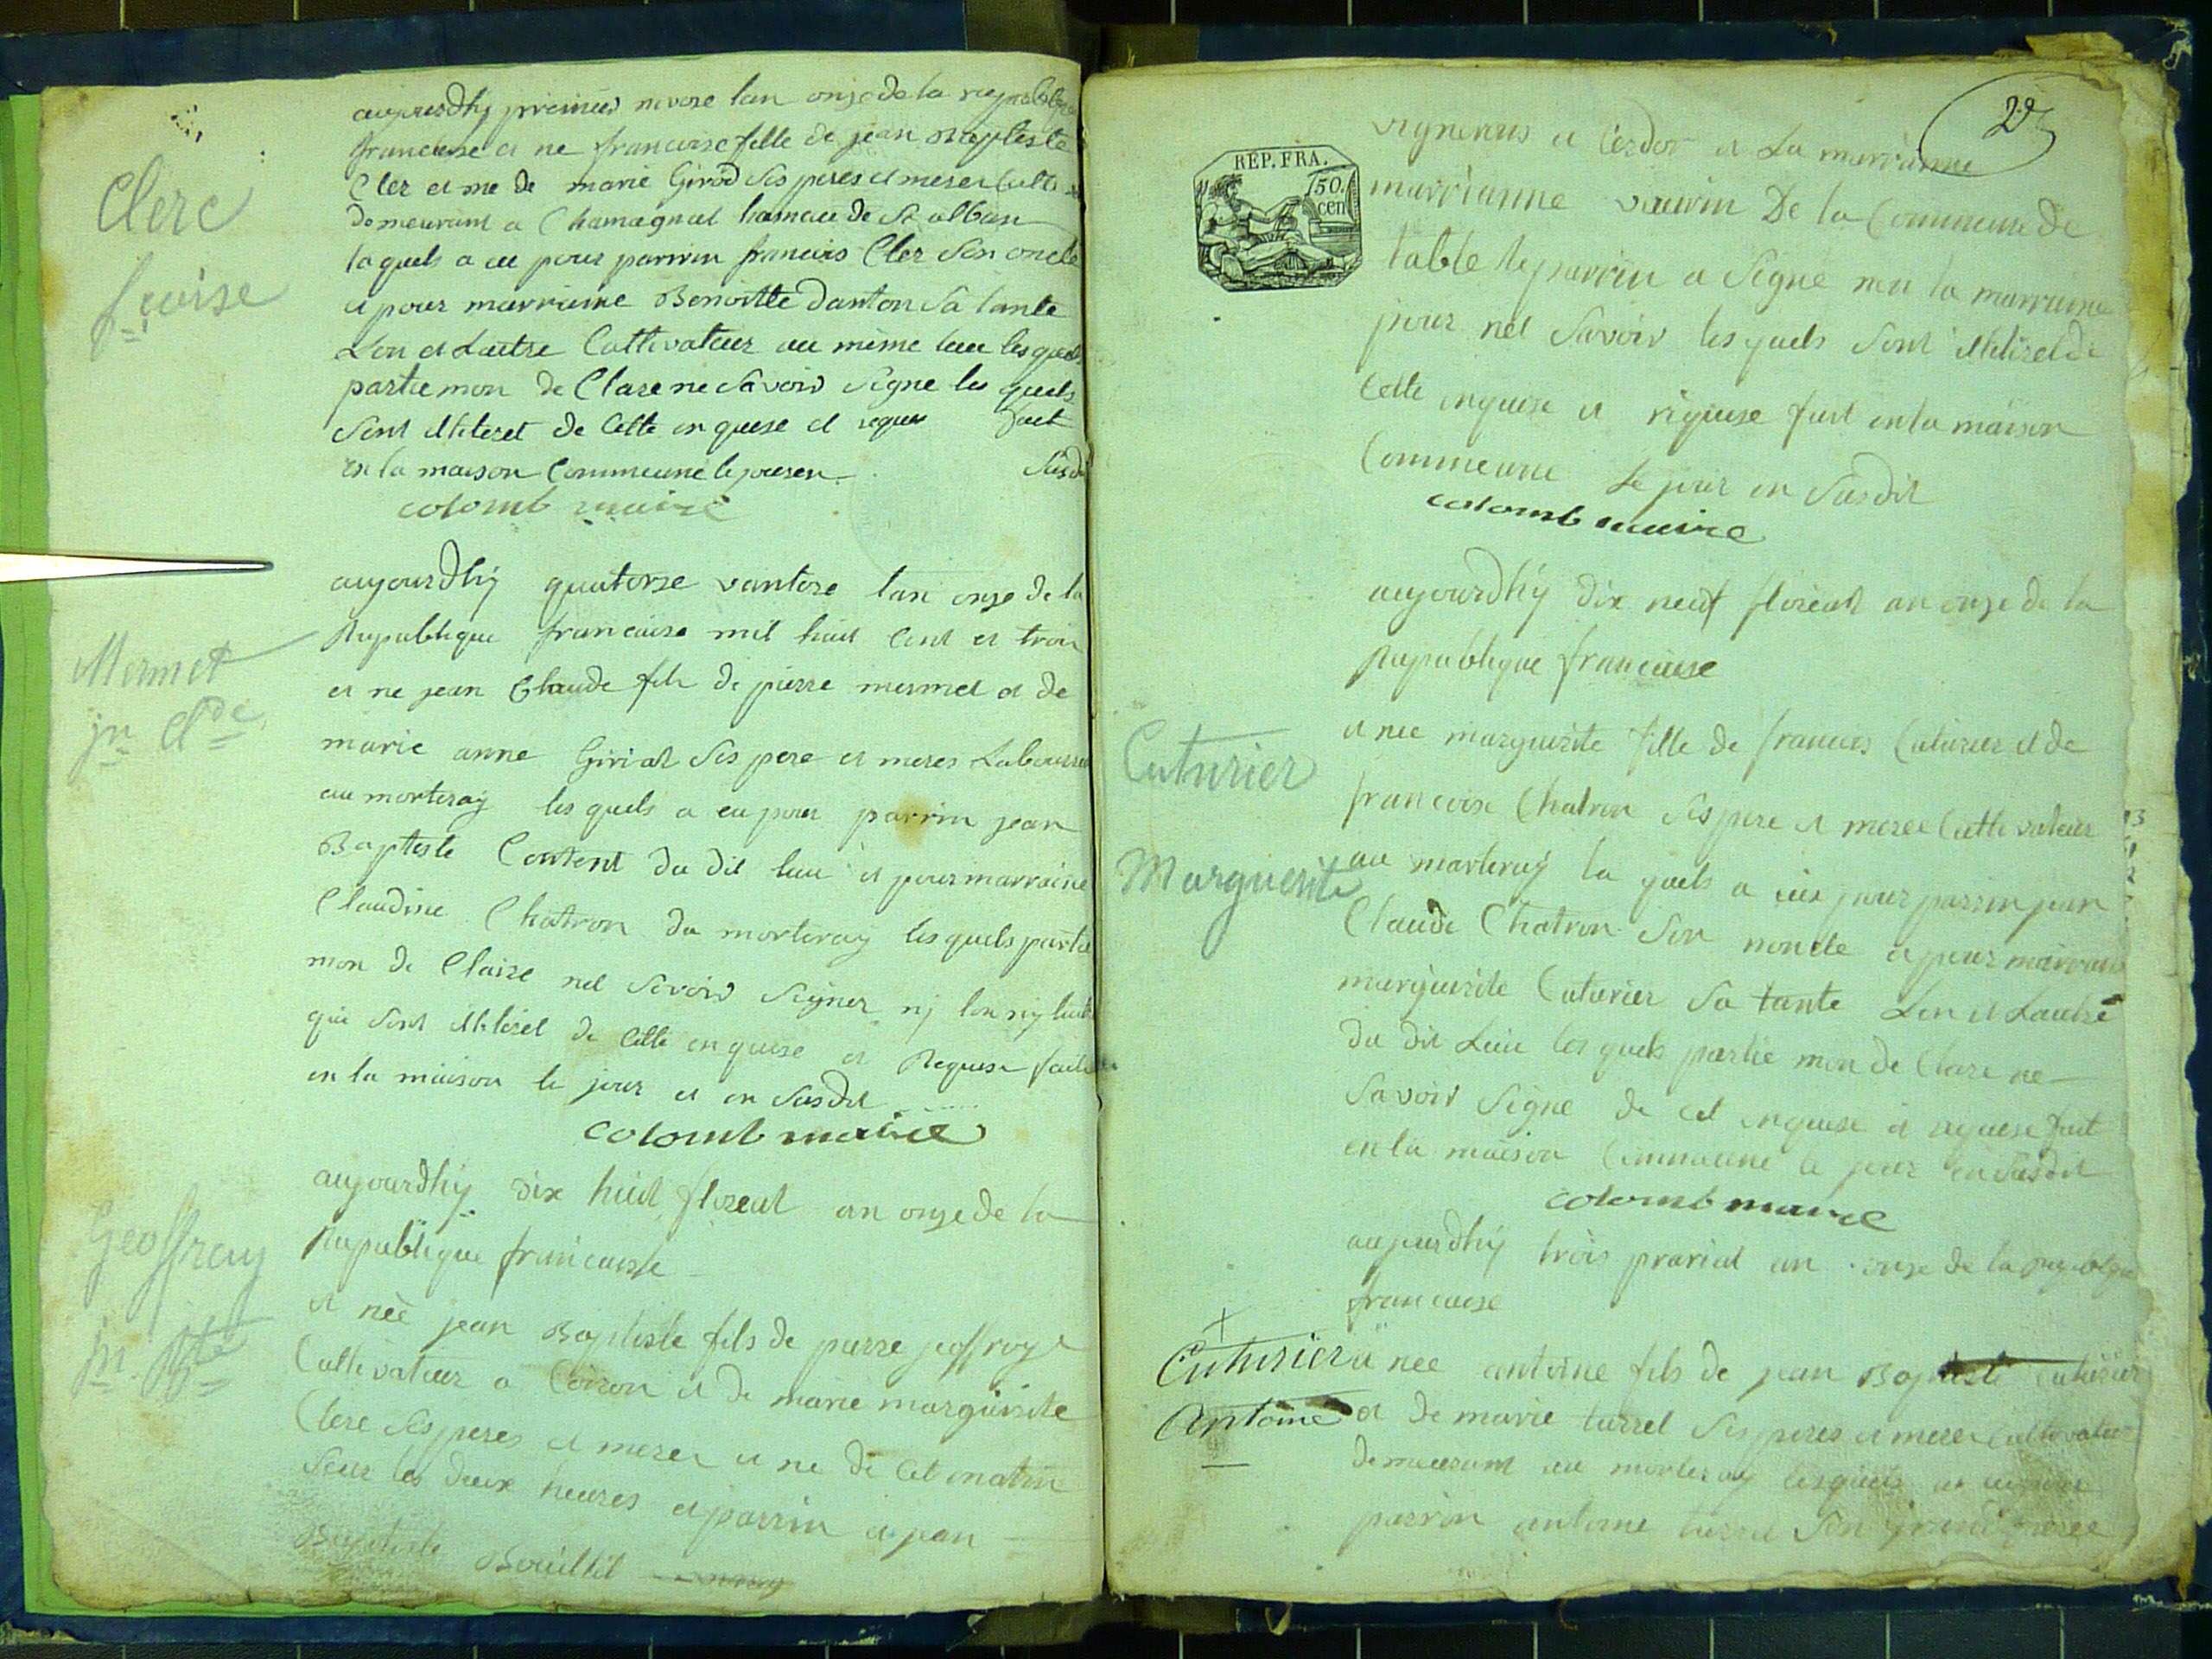 Clerc
f.coise
aujourdhy premier nivose lan onze de la republique
francaise et ne francoise fille de jean Baptiste
Cler et me de marie Girod ses peres et meres Culti
demeurant a Chamagnat hameau de St alban
laquels a eu pour parrin francois Cler son oncle
et pour marriane Benoitte Danton sa tante
Lon et Lautre Cultivateur au même lieu lesquels
partie mon de Clare ne savoir signe les quels
sont illiteret de Cette enquese et reques fait
en la maison Commeune le jour en susdit
colomb maire
Mermet
jn Clde
aujourdhy quatorse vantose lan onze de la
Republique francaise mil huit Cent et trois
et ne jean Claude fils de pierre mermet et de
marie anne Giriat ses pere et meres Laboureur
au morteray les quels a eu pour parrin jean
Baptiste Content du dit lieu et pour marraine
Claudine Chatron du morteray les quels partie
mon de Claire nel savoir signer nj lon nj lautre
qui sont illiteret de Cette enquese et Requese faite
en la maison le jour et en susdit
colomb maire
Geoffray
jn Bte
aujourdhy dix huit floreal an onze de la
Republique francaise
et neè jean Baptiste fils de pierre jeoffroy
Cultivateur a Coiron et de marie marguirite
Clerc ses peres et meres et ne de Cet matin
seur les deux heures et parrin et jean
Baptiste Bouillet
29
REP. FRA.
50.
cen
vignerons a Cerdon et La marrianne
marrianne vuirin De la Commeune de
table le parrin a signe nou la marriane
pour nel savoir les quels sont illiteret de
Cette enquese et riquese fait en la maison
Commeune Le jour en susdit
colomb maire
aujourdhy dix neuf floreal an onze de la
Republique francaise
Cuturier
Marguerite
et nee marguirite fille de francois Cuturier et de
francoise Chatron ses pere et meres Cultivateur
au morteray la quels a eu pour parrin jean
Claude Chatron son noncle et pour marriane
marguirite Cuturier sa tante Lon et Lautre
du dit Lieu les quels partie mon de Clare ne
savoir signe de cet enquese et requese fait
en la maison Commeune le jour en susdit
colomb maire
aujourdhy trois prarial an onze de la republique
francaise
Cuturier
Antoine
et nee antoine fils de jean Baptiste Cuturier
et de marie turrel ses peres et meres Cultivateur
demeurant au morteray lesquels a eu pour
parrin antoine turrel son grand perre